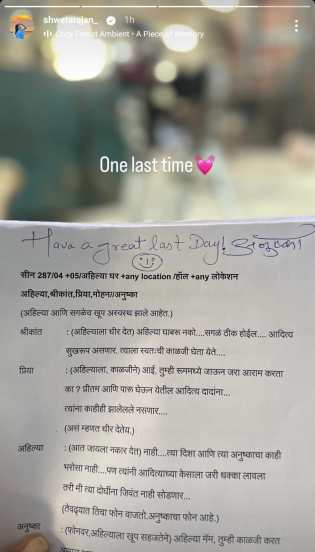 shwetarajan_ 1h
Cozy Forest Ambient • A Piece of Memory
One last time
Have a great last Day! अनुष्का
सीन 287/04 +05/अहिल्या घर +any location /हॉल +any लोकेशन
अहिल्या,श्रीकांत,प्रिया,मोहन//अनुष्का
(अहिल्या आणि सगळेच खूप अस्वस्थ झाले आहेत.)
श्रीकांत : (अहिल्याला धीर देत) अहिल्या घाबरू नको....सगळं ठीक होईल.... आदित्य
सुखरूप असणार. त्याला स्वतःची काळजी घेता येते....
प्रिया : (अहिल्याला, काळजीने) आई, तुम्ही रूममध्ये जाऊन जरा आराम करता
का ? प्रीतम आणि पारू घेऊन येतील आदित्य दादांना...
त्यांना काहीही झालेलले नसणार....
(असं म्हणत धीर देतेय.)
अहिल्या : (आत जायला नकार देत) नाही....त्या दिशा आणि त्या अनुष्काचा काही
भरोसा नाही....पण त्यांनी आदित्यच्या केसाला जरी धक्का लावला
तरी मी त्या दोघींना जिवंत नाही सोडणार...
(तेवढ्यात तिचा फोन वाजतो.अनुष्काचा फोन आहे.)
अनुष्का : (फोनवर,अहिल्याला खूप सहजतेने) अहिल्या मॅम, तुम्ही काळजी करत